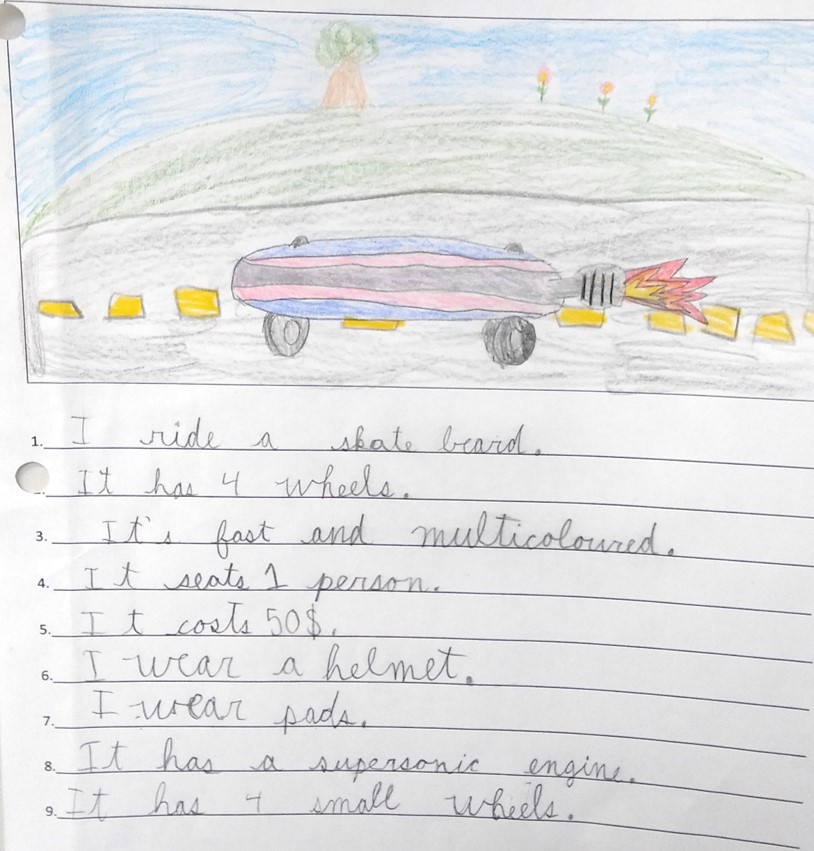 1. I ride a skate board.
It has 4 wheels.
3. It's fast and multicoloured.
4. It seats 1 person.
5. It costs 50$.
6. I wear a helmet.
7. I wear pads.
8. It has a supersonic engine.
9. It has 4 small wheels.